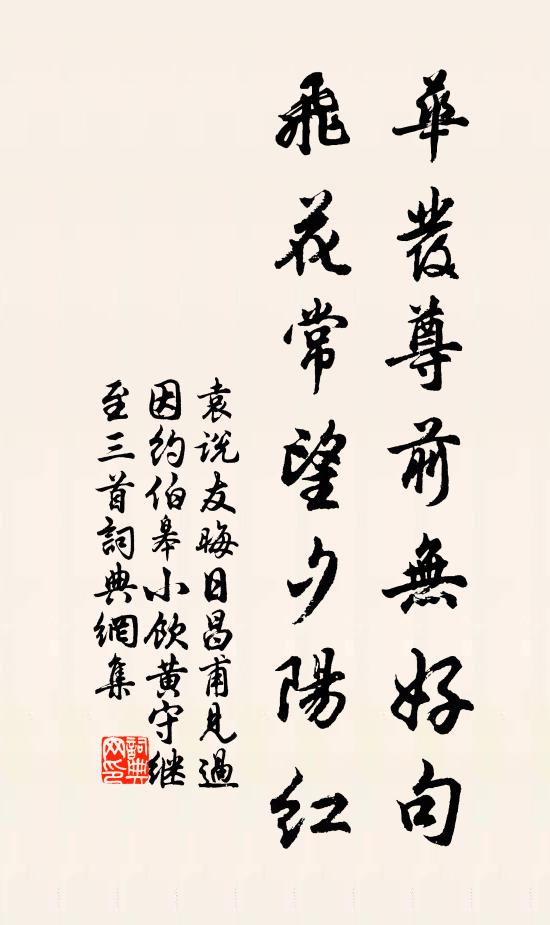 華發尊前無好句
飛花常望夕陽紅
袁说友晦日昌甫見過
因約伯皋小飲黄守继
至三首詞典網集
詞典网印